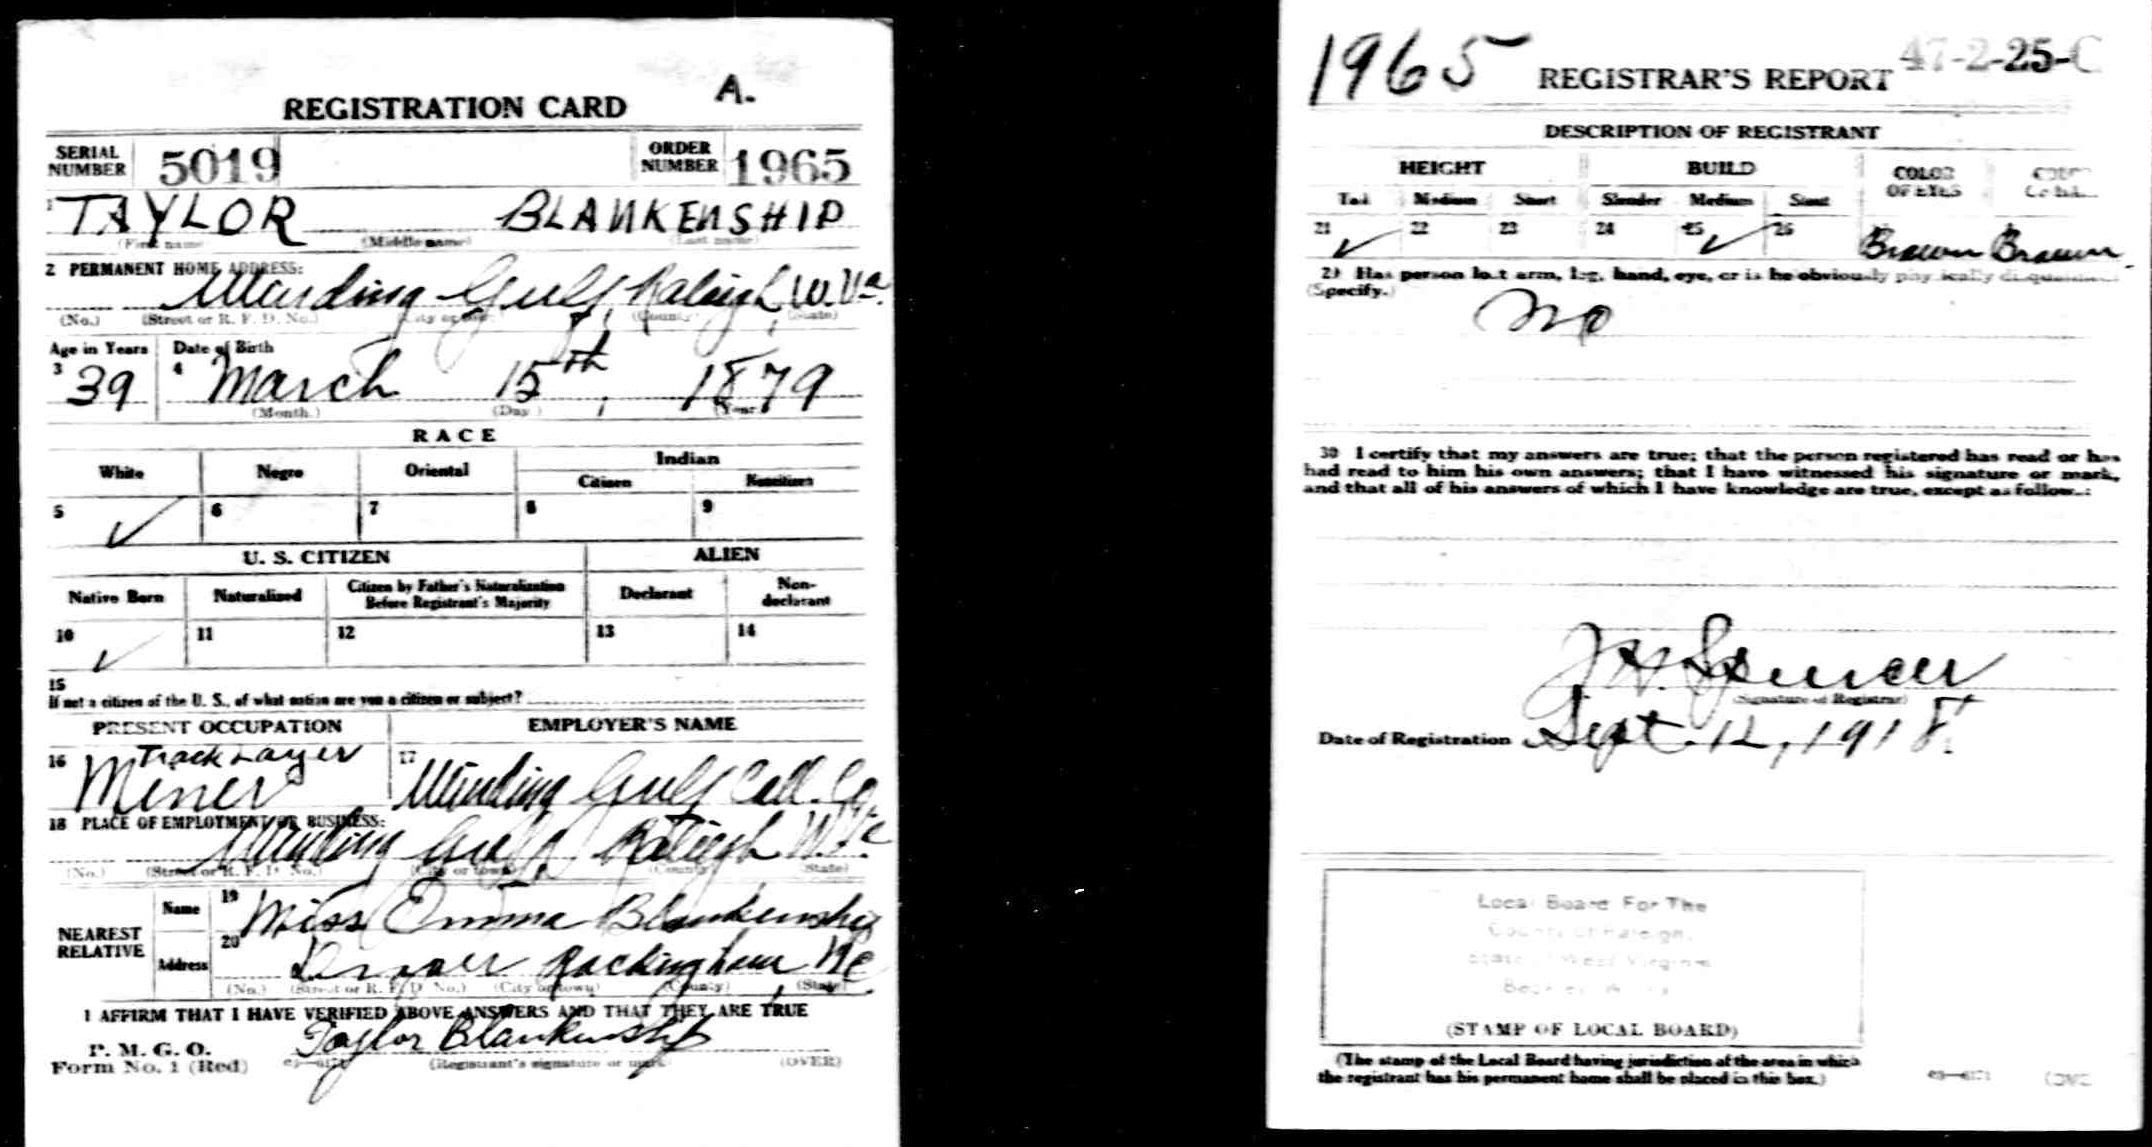 A.
REGISTRATION CARD
SERIAL NUMBER 5019 ORDER NUMBER 1965
1 TAYLOR BLANKENSHIP
(First name) (Middle name) (Last name)
2 PERMANENT HOME ADDRESS:
Winding Gulf, Raleigh, W. Va.
(No.) (Street or R. F. D. No.) (City or town) (County) (State)
Age in Years Date of Birth
3 39 4 March 15th, 1879
(Month.) (Day.) (Year.)
RACE
White Negro Oriental Indian
Citizen Noncitizen
5 ✓ 6 7 8 9
U. S. CITIZEN ALIEN
Native Born Naturalized Citizen by Father's Naturalization Before Registrant's Majority Declarant Non-declarant
10 ✓ 11 12 13 14
15
If not a citizen of the U. S., of what nation are you a citizen or subject?
PRESENT OCCUPATION EMPLOYER'S NAME
16 Track Layer 17
Miner Winding Gulf Coll. Co
18 PLACE OF EMPLOYMENT OR BUSINESS:
Winding Gulf, Raleigh W. Va
(No.) (Street or R. F. D. No.) (City or town) (County) (State)
NEAREST RELATIVE Name 19 Miss Emma Blankenship
Address 20 Rockingham NC
(No.) (Street or R. F. D. No.) (City or town) (County) (State)
I AFFIRM THAT I HAVE VERIFIED ABOVE ANSWERS AND THAT THEY ARE TRUE
P. M. G. O.
Form No. 1 (Red) Taylor Blankenship
(Registrant's signature or mark) (OVER)
1965 REGISTRAR'S REPORT 47-2-25-C
DESCRIPTION OF REGISTRANT
HEIGHT BUILD COLOR OF EYES
Tall Medium Short Slender Medium Stout
21 ✓ 22 23 24 25 ✓ 26 Brown Brown
29 Has person lost arm, leg, hand, eye, or is he obviously physically disqualified?
(Specify.)
No
30 I certify that my answers are true; that the person registered has read or has
had read to him his own answers; that I have witnessed his signature or mark,
and that all of his answers of which I have knowledge are true, except as follows:
J. H. Spencer
(Signature of Registrar)
Date of Registration Sept. 12, 1918.
Local Board For The
County of Raleigh,
State of West Virginia
(STAMP OF LOCAL BOARD)
(The stamp of the Local Board having jurisdiction of the area in which
the registrant has his permanent home shall be placed in this box.)